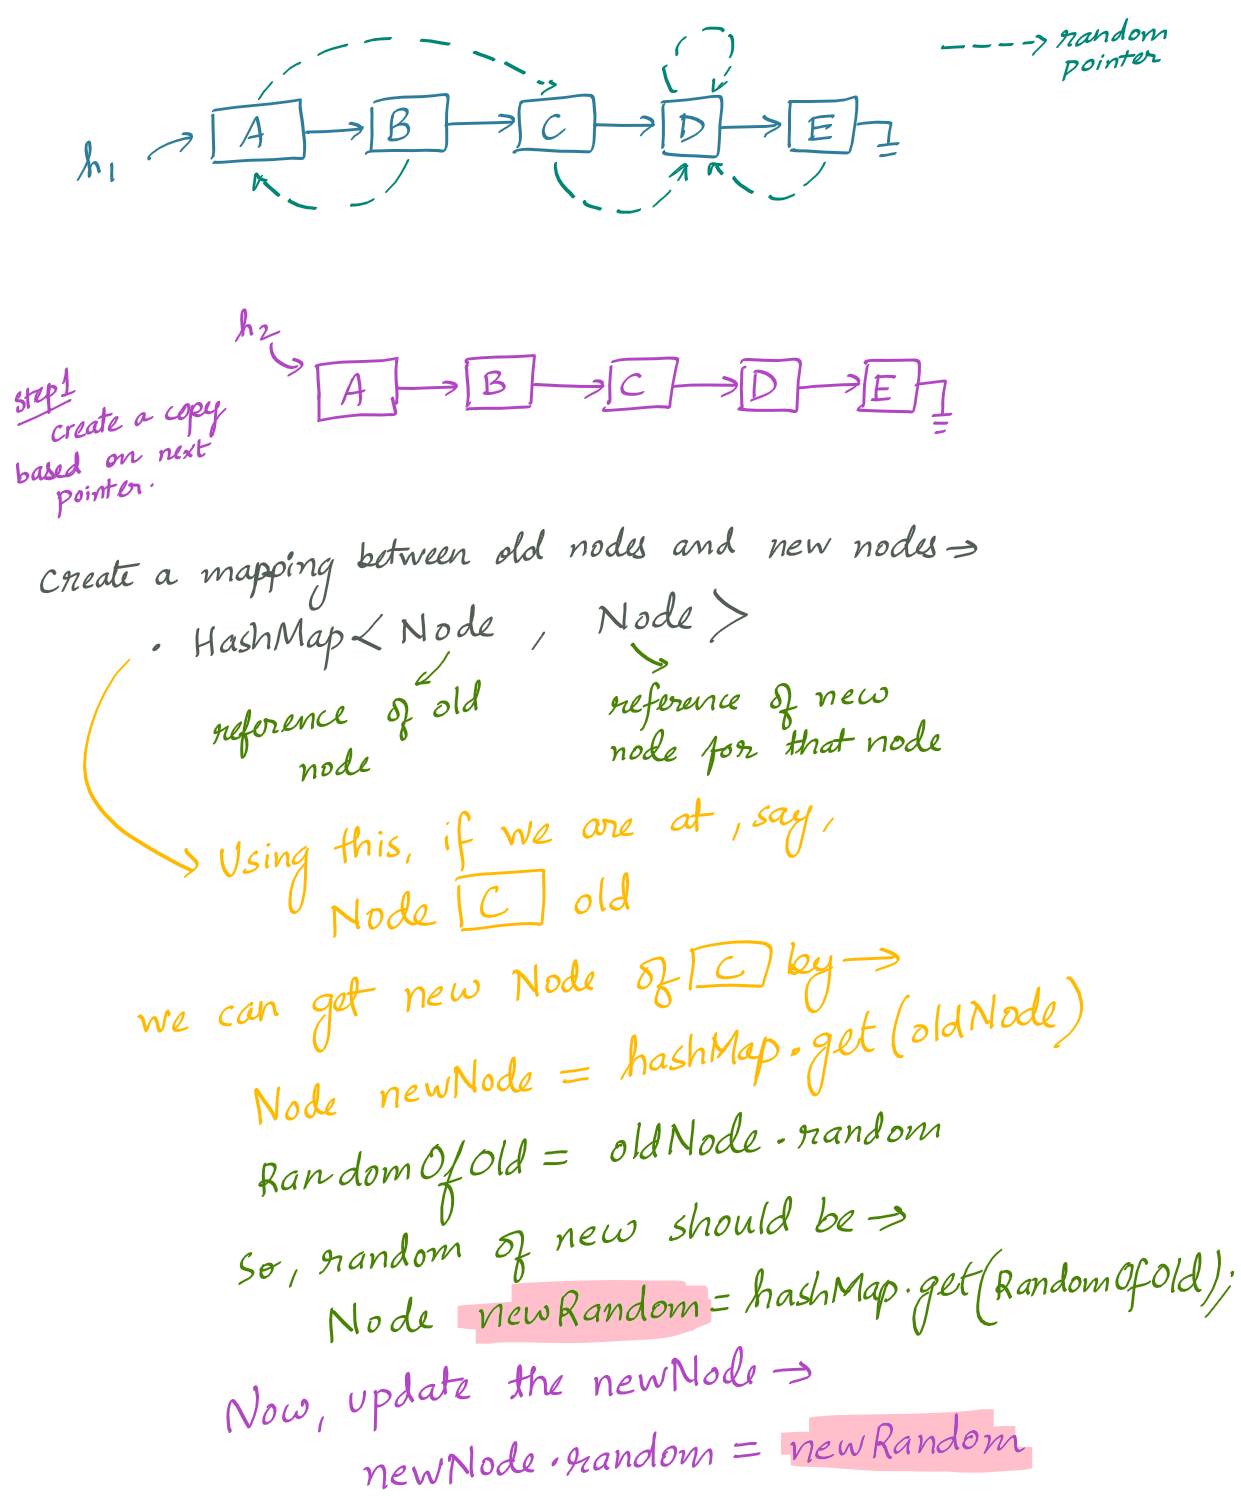 random
pointer
h1 A B C D E
h2
A B C D E
step1
create a copy
based on next
pointer.
Create a mapping between old nodes and new nodes →
. HashMap < Node , Node >
reference of old
node
reference of new
node for that node
Using this, if we are at, say,
Node C old
we can get new Node of C by →
Node newNode = hashMap.get(oldNode)
RandomOfOld = oldNode.random
So, random of new should be →
Node newRandom = hashMap.get(RandomOfOld);
Now, update the newNode →
newNode.random = newRandom